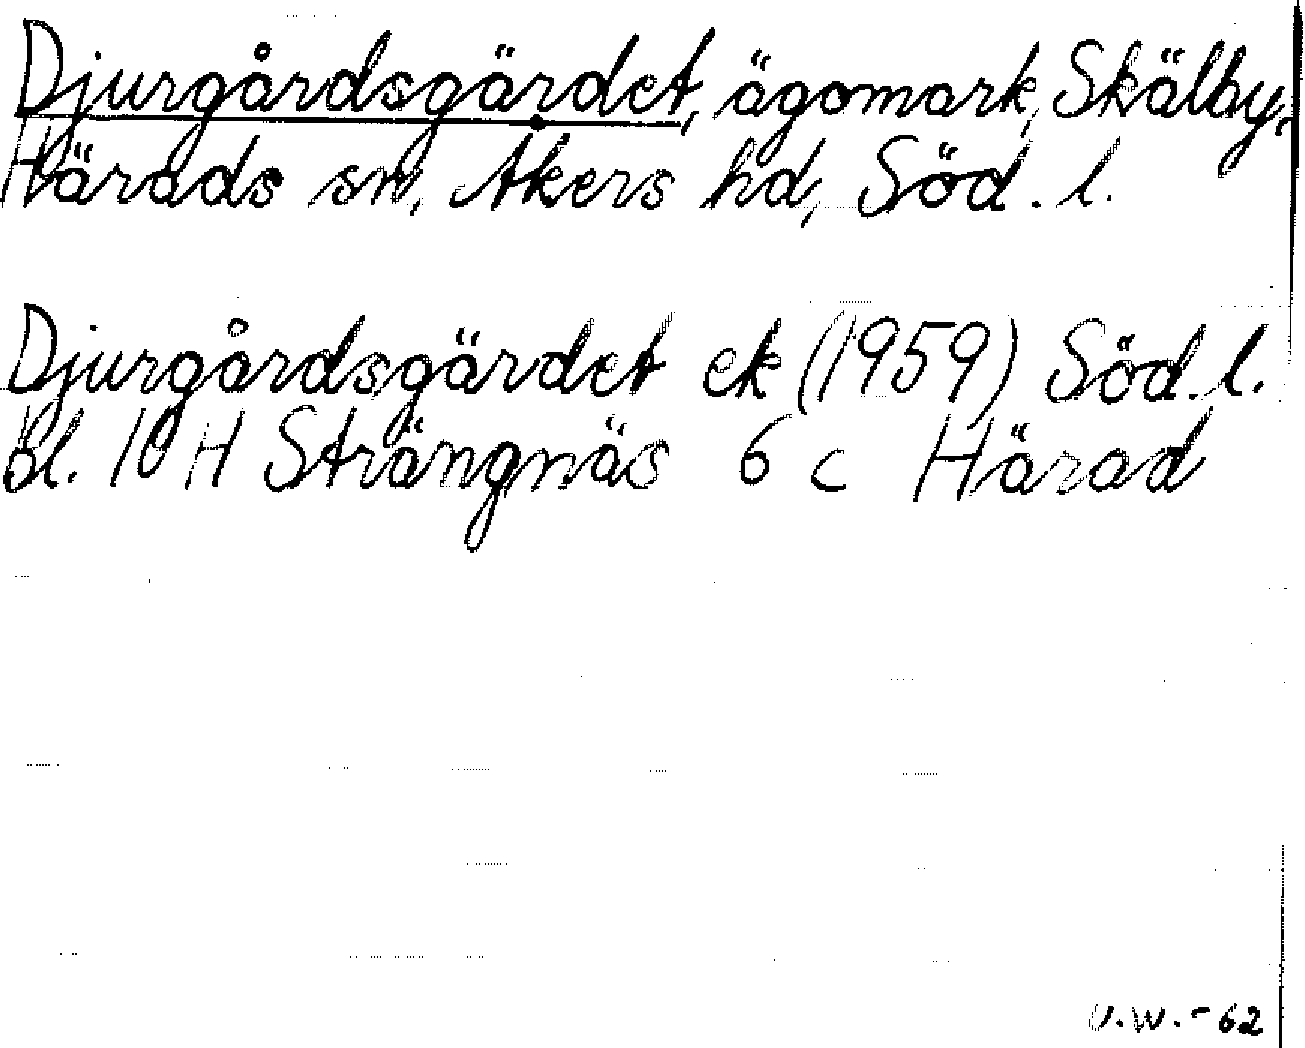 Djurgårdsgärdet, ägomark, Skälby,
Härads sn, Åkers hd, Söd. l.
Djurgårdsgärdet ek (1959) Söd. l.
bl. 10 H Strängnäs 6 c Härad
U.W. - 62